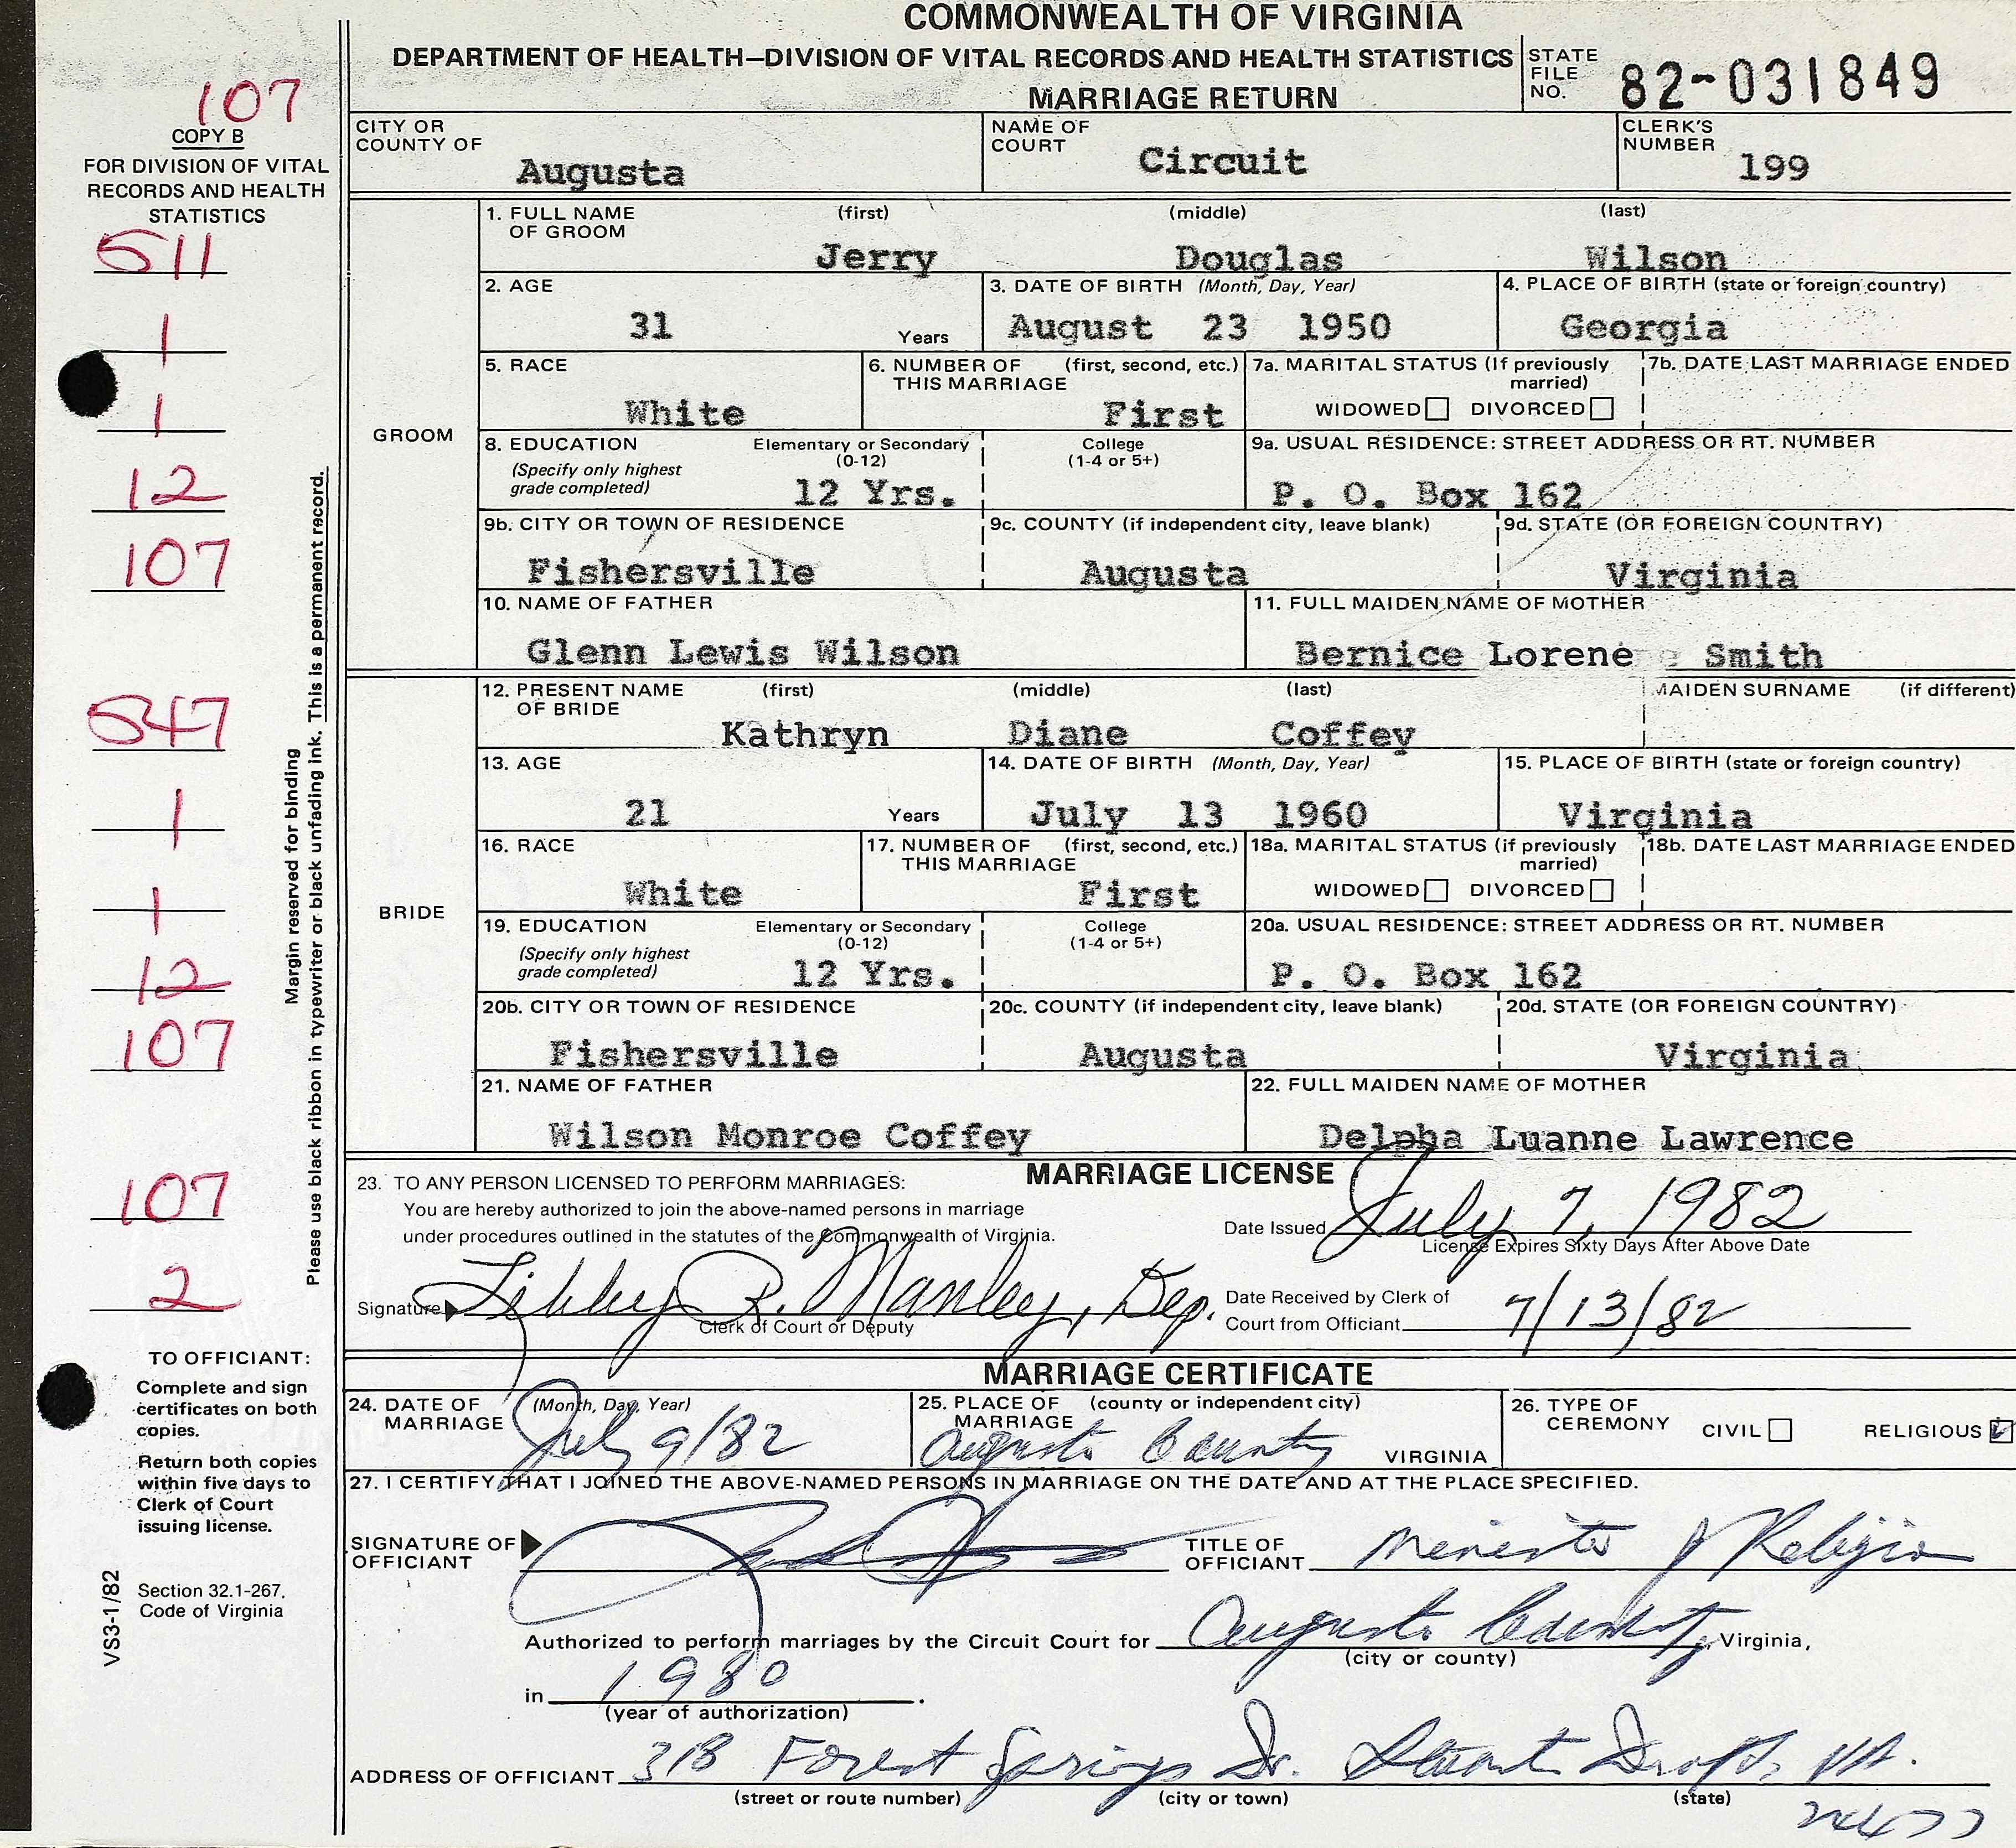 COMMONWEALTH OF VIRGINIA
DEPARTMENT OF HEALTH—DIVISION OF VITAL RECORDS AND HEALTH STATISTICS
MARRIAGE RETURN
STATE FILE NO. 82-031849
107
COPY B
FOR DIVISION OF VITAL
RECORDS AND HEALTH
STATISTICS
CITY OR COUNTY OF Augusta
NAME OF COURT Circuit
CLERK'S NUMBER 199
511
1
1
12
107
547
1
1
12
107
107
2
Margin reserved for binding
Please use black ribbon in typewriter or black unfading ink. This is a permanent record.
GROOM
1. FULL NAME OF GROOM (first) (middle) (last)
Jerry Douglas Wilson
2. AGE 31 Years
3. DATE OF BIRTH (Month, Day, Year) August 23 1950
4. PLACE OF BIRTH (state or foreign country) Georgia
5. RACE White
6. NUMBER OF THIS MARRIAGE (first, second, etc.) First
7a. MARITAL STATUS (If previously married) WIDOWED DIVORCED
7b. DATE LAST MARRIAGE ENDED
8. EDUCATION (Specify only highest grade completed) Elementary or Secondary (0-12) 12 Yrs. College (1-4 or 5+)
9a. USUAL RESIDENCE: STREET ADDRESS OR RT. NUMBER P. O. Box 162
9b. CITY OR TOWN OF RESIDENCE Fishersville
9c. COUNTY (if independent city, leave blank) Augusta
9d. STATE (OR FOREIGN COUNTRY) Virginia
10. NAME OF FATHER Glenn Lewis Wilson
11. FULL MAIDEN NAME OF MOTHER Bernice Lorene Smith
BRIDE
12. PRESENT NAME OF BRIDE (first) (middle) (last) MAIDEN SURNAME (if different)
Kathryn Diane Coffey
13. AGE 21 Years
14. DATE OF BIRTH (Month, Day, Year) July 13 1960
15. PLACE OF BIRTH (state or foreign country) Virginia
16. RACE White
17. NUMBER OF THIS MARRIAGE (first, second, etc.) First
18a. MARITAL STATUS (if previously married) WIDOWED DIVORCED
18b. DATE LAST MARRIAGE ENDED
19. EDUCATION (Specify only highest grade completed) Elementary or Secondary (0-12) 12 Yrs. College (1-4 or 5+)
20a. USUAL RESIDENCE: STREET ADDRESS OR RT. NUMBER P. O. Box 162
20b. CITY OR TOWN OF RESIDENCE Fishersville
20c. COUNTY (if independent city, leave blank) Augusta
20d. STATE (OR FOREIGN COUNTRY) Virginia
21. NAME OF FATHER Wilson Monroe Coffey
22. FULL MAIDEN NAME OF MOTHER Delpha Luanne Lawrence
MARRIAGE LICENSE
23. TO ANY PERSON LICENSED TO PERFORM MARRIAGES:
You are hereby authorized to join the above-named persons in marriage
under procedures outlined in the statutes of the Commonwealth of Virginia.
Date Issued July 7, 1982
License Expires Sixty Days After Above Date
Signature Libby R. Manley, Dep.
Clerk of Court or Deputy
Date Received by Clerk of
Court from Officiant 7/13/82
TO OFFICIANT:
Complete and sign
certificates on both
copies.
Return both copies
within five days to
Clerk of Court
issuing license.
Section 32.1-267,
Code of Virginia
VS3-1/82
MARRIAGE CERTIFICATE
24. DATE OF MARRIAGE (Month, Day, Year) July 9/82
25. PLACE OF MARRIAGE (county or independent city) Augusta County VIRGINIA
26. TYPE OF CEREMONY CIVIL RELIGIOUS
27. I CERTIFY THAT I JOINED THE ABOVE-NAMED PERSONS IN MARRIAGE ON THE DATE AND AT THE PLACE SPECIFIED.
SIGNATURE OF OFFICIANT
TITLE OF OFFICIANT Minister of Religion
Authorized to perform marriages by the Circuit Court for Augusta County, Virginia,
(city or county)
in 1980.
(year of authorization)
ADDRESS OF OFFICIANT 318 Forest Springs Dr. Stuarts Draft, VA.
(street or route number) (city or town) (state)
24477